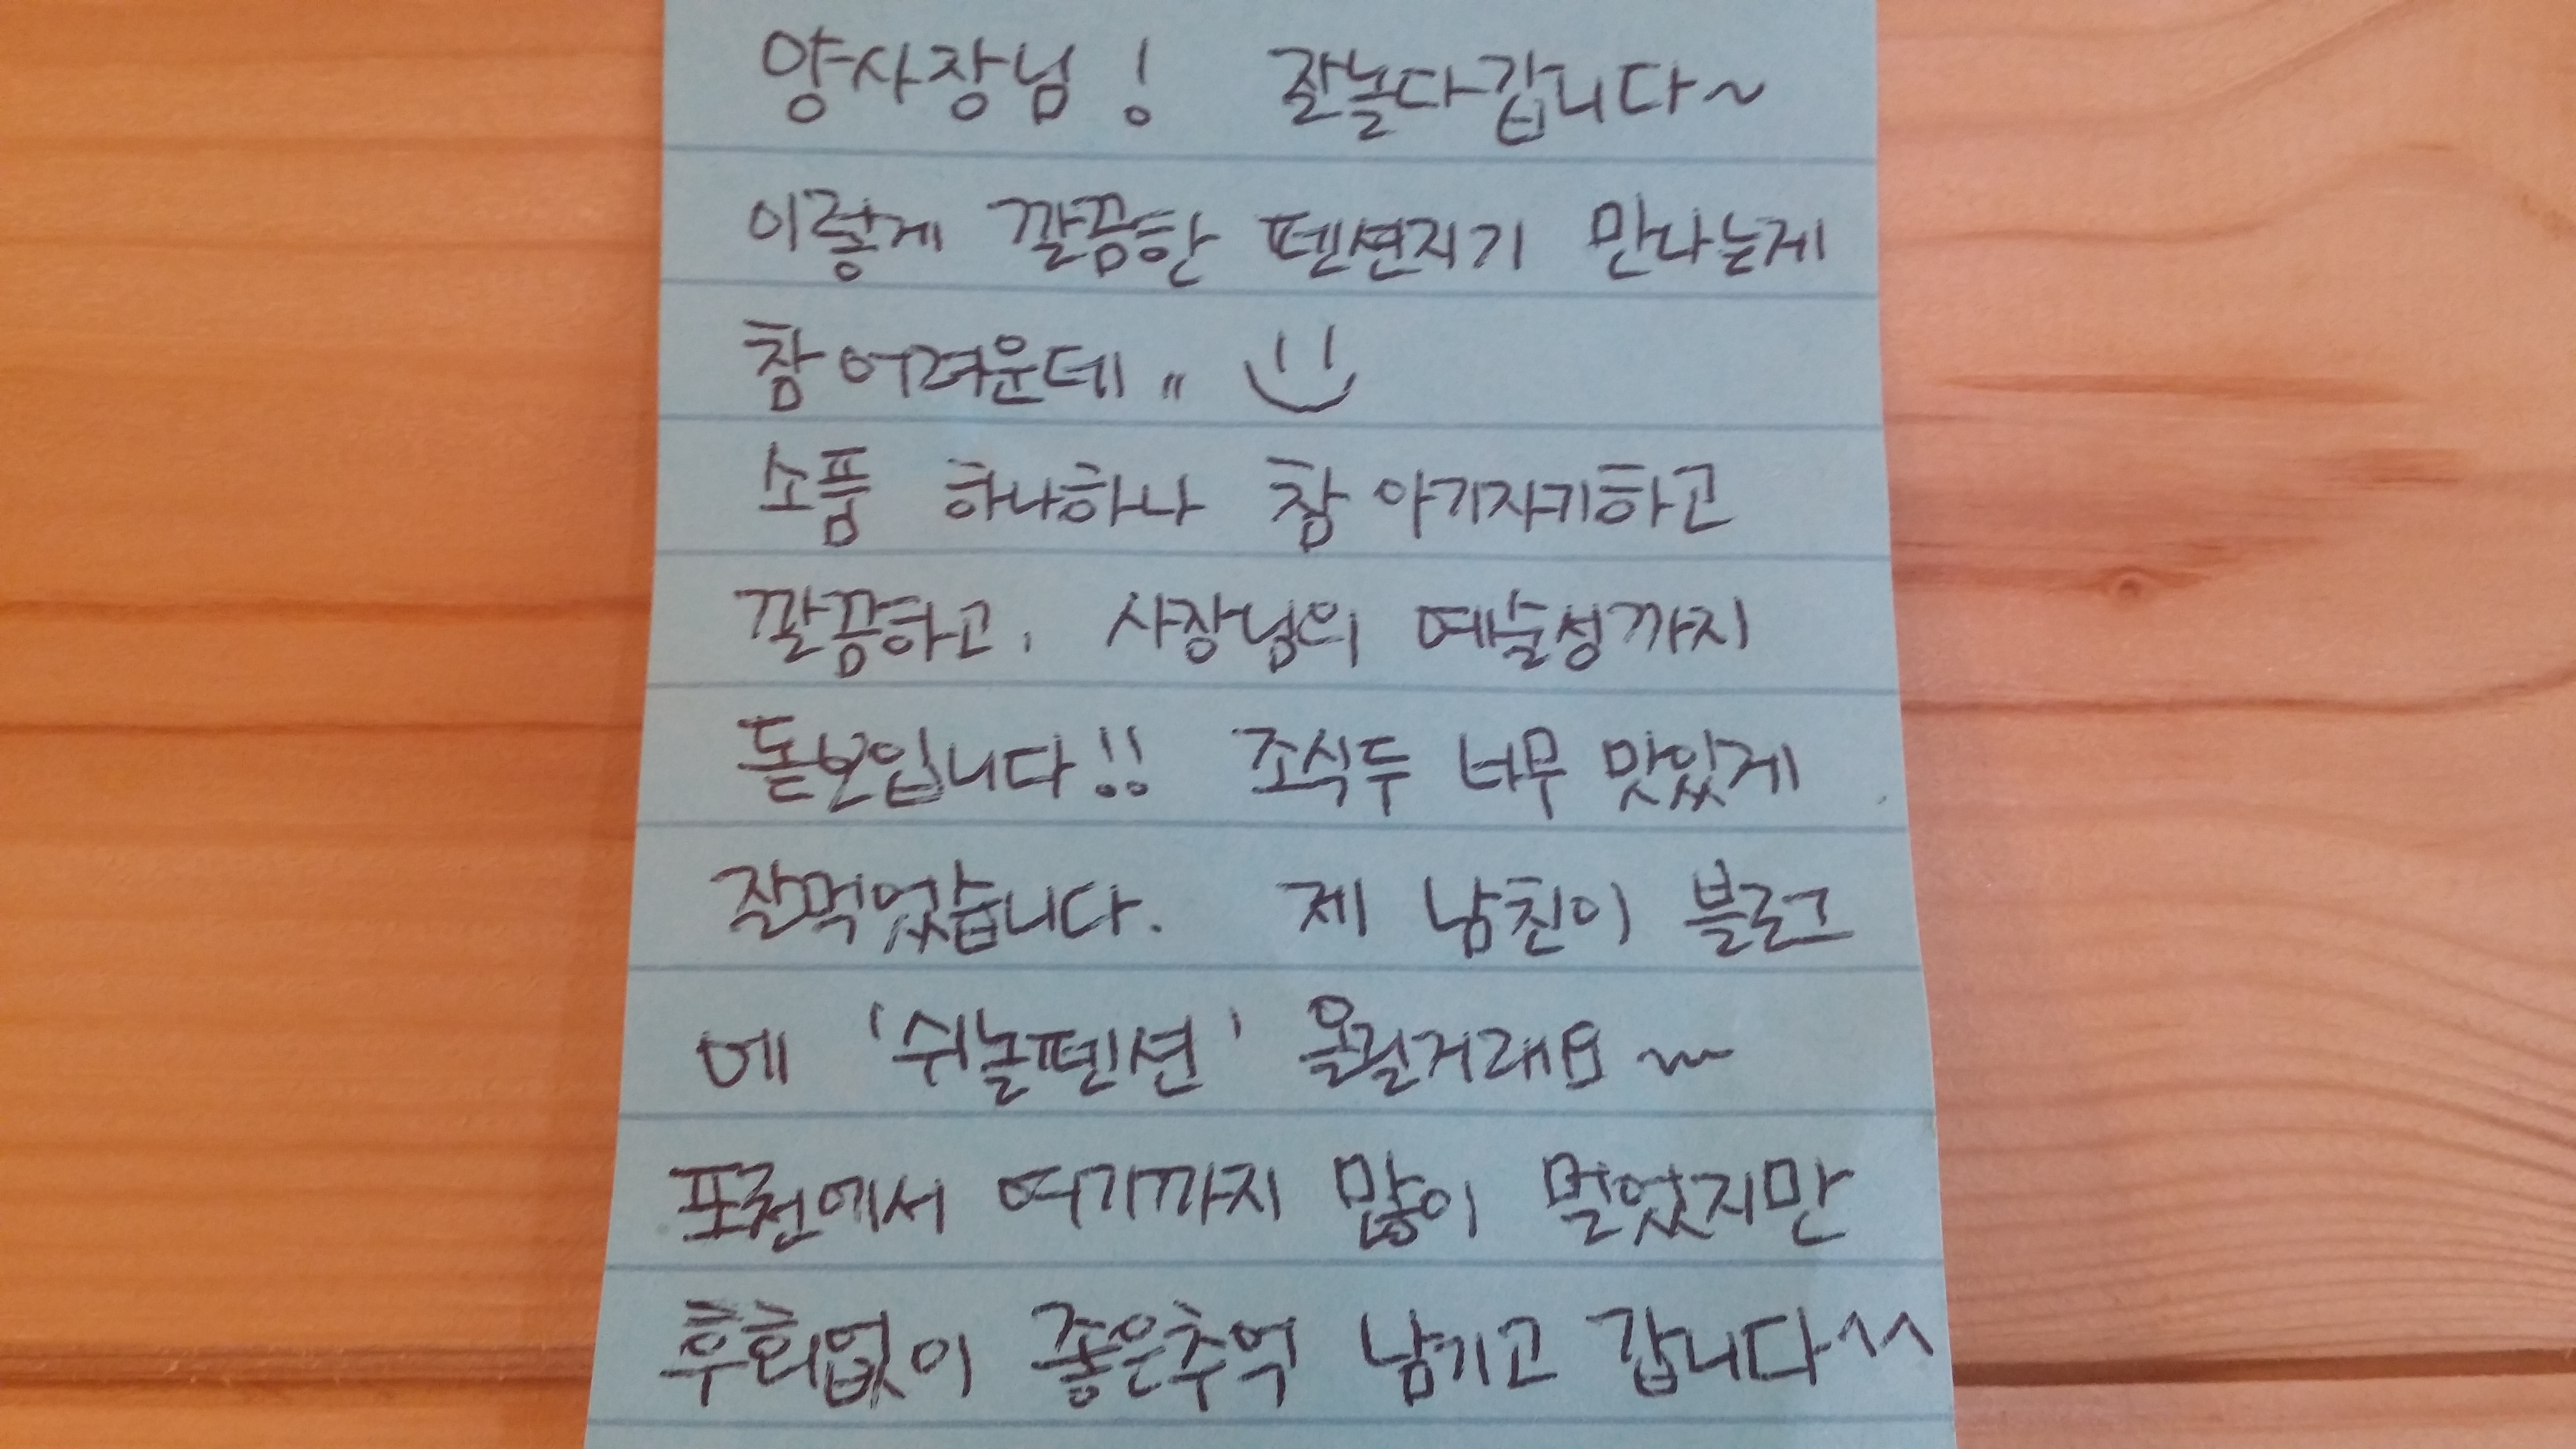 양사장님! 잘놀다갑니다~
이렇게 깔끔한 펜션지기 만나는게
참 어려운데 〃
소품 하나하나 참 아기자기하고
깔끔하고, 사장님의 예술성까지
돋보입니다!! 조식두 너무 맛있게
잘먹었습니다. 제 남친이 블로그
에 '쉬놀펜션' 올릴거래요~
포천에서 여기까지 많이 멀었지만
후회없이 좋은추억 남기고 갑니다^^